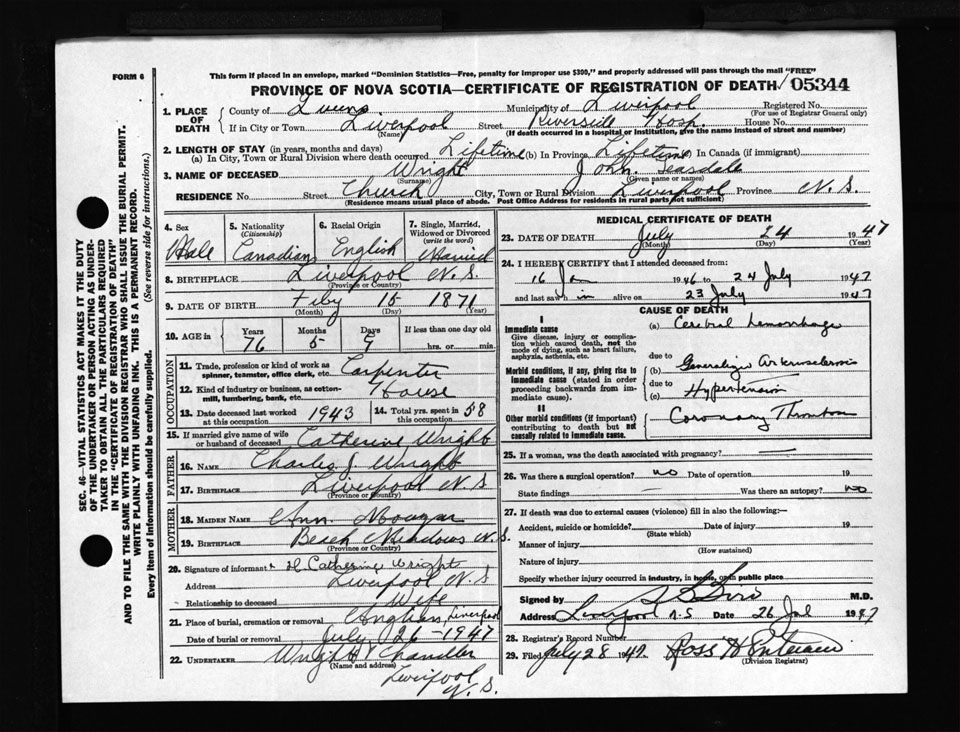 FORM 6
This form if placed in an envelope, marked "Dominion Statistics—Free, penalty for improper use $300," and properly addressed will pass through the mail "FREE"
PROVINCE OF NOVA SCOTIA—CERTIFICATE OF REGISTRATION OF DEATH 05344
1. PLACE OF DEATH
County of Queens Municipality of Liverpool Registered No.
(For use of Registrar General only)
If in City or Town Liverpool Street Riverside Hosp. House No.
(Name) (If death occurred in a hospital or institution, give the name instead of street and number)
2. LENGTH OF STAY (in years, months and days)
(a) In City, Town or Rural Division where death occurred Lifetime (b) In Province Lifetime (c) In Canada (if immigrant)
3. NAME OF DECEASED Wright John Teasdale
(Surname) (Given name or names)
RESIDENCE No. Street Church City, Town or Rural Division Liverpool Province N.S.
(Residence means usual place of abode. Post Office Address for residents in rural parts not sufficient)
4. Sex Male
5. Nationality (Citizenship) Canadian
6. Racial Origin English
7. Single, Married, Widowed or Divorced (write the word) Married
8. BIRTHPLACE Liverpool N.S.
(Province or Country)
9. DATE OF BIRTH Feby 15 1871
(Month) (Day) (Year)
10. AGE in Years Months Days If less than one day old
76 5 9 hrs. or min.
OCCUPATION
11. Trade, profession or kind of work as spinner, teamster, office clerk, etc. Carpenter
12. Kind of industry or business, as cotton-mill, lumbering, bank, etc. House
13. Date deceased last worked at this occupation 1943
14. Total yrs. spent in this occupation 58
15. If married give name of wife or husband of deceased Catherine Wright
FATHER
16. NAME Charles J. Wright
17. BIRTHPLACE Liverpool N.S
(Province or Country)
MOTHER
18. MAIDEN NAME Ann
19. BIRTHPLACE Beach Meadows N.S.
(Province or Country)
20. Signature of informant H. Catherine Wright
Address Liverpool N.S
Relationship to deceased Wife
21. Place of burial, cremation or removal Anglican, Liverpool
Date of burial or removal July 26-1947
22. UNDERTAKER Wright & Chandler
(Name and address)
Liverpool
N.S.
MEDICAL CERTIFICATE OF DEATH
23. DATE OF DEATH July 24 1947
(Month) (Day) (Year)
24. I HEREBY CERTIFY that I attended deceased from:
16 Jan 1946 to 24 July 1947
and last saw him alive on 23 July 1947
CAUSE OF DEATH
I
Immediate cause
Give disease, injury or complication which caused death, not the mode of dying, such as heart failure, asphyxia, asthenia, etc.
(a) Cerebral hemorrhage
due to
Morbid conditions, if any, giving rise to immediate cause (stated in order proceeding backwards from immediate cause).
(b) Generalized Arteriosclerosis
due to
(c) Hypertension
II
Other morbid conditions (if important) contributing to death but not causally related to immediate cause.
Coronary Thrombosis
25. If a woman, was the death associated with pregnancy?
26. Was there a surgical operation? no Date of operation 19
State findings Was there an autopsy? no
27. If death was due to external causes (violence) fill in also the following:—
Accident, suicide or homicide? Date of injury 19
(State which)
Manner of injury
(How sustained)
Nature of injury
Specify whether injury occurred in industry, in home, or in public place
Signed by M.D.
Address Liverpool N.S Date 26 Jul 1947
28. Registrar's Record Number
29. Filed July 28 1947. Ross H
(Division Registrar)
SEC. 46—VITAL STATISTICS ACT MAKES IT THE DUTY
OF THE UNDERTAKER OR PERSON ACTING AS UNDER-
TAKER TO OBTAIN ALL THE PARTICULARS REQUIRED
IN THE "CERTIFICATE OF REGISTRATION OF DEATH"
AND TO FILE THE SAME WITH THE DIVISION REGISTRAR WHO SHALL ISSUE THE BURIAL PERMIT.
WRITE PLAINLY WITH UNFADING INK. THIS IS A PERMANENT RECORD.
Every item of information should be carefully supplied. (See reverse side for instructions.)